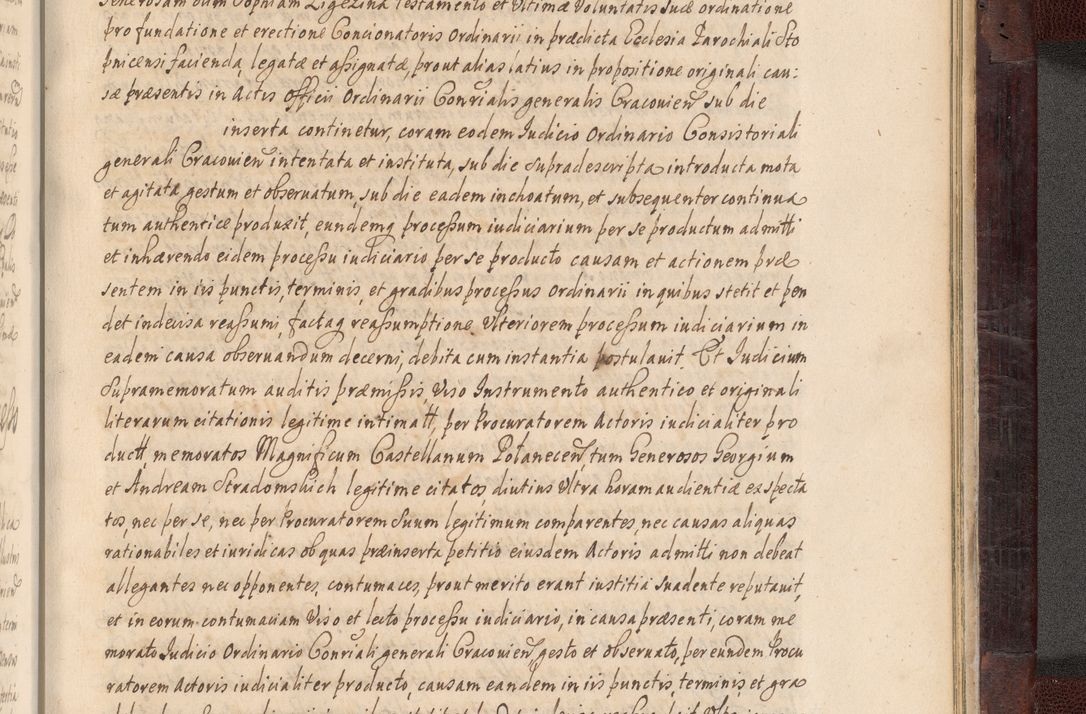 Generosam olim Sophiam Ligezina Testamento et Ultimæ Voluntatis suæ ordinatione
pro fundatione et erectione Concionatoris Ordinarii in prædicta Ecclesia Parochiali Sto
pnicensi facienda, legatæ et assignatæ, prout alias latius in propositione originali cau:
sæ præsentis in Actis Officii Ordinarii Conrialis generalis Cracovien sub die
inserta continetur, coram eodem Iudicio Ordinario Consistoriali
generali Cracovien intentata et instituta, sub die supradescripta introducta mota
et agitata gestum et observatum, sub die eadem inchoatum, et subsequenter continua
tum authentice produxit, eundemq processum iudiciarium per se productum admitti
et inhærendo eidem processu iudiciario per se producto causam et actionem præ
sentem in iis punctis, terminis, et gradibus processus Ordinarii in quibus stetit et pen
det indecisa reassumi, factaq reassumptione Ulteriorem processum iudiciarium in
eadem causa observandum decerni, debita cum instantia postulavit. Et Iudicium
Supramemoratum auditis præmissis, Viso Instrumento authentico et originali
literarum citationis legitime intimatt, per Procuratorem Actoris iudicialiter pro
ductt, memoratos Magnificum Castellanum Polanecen, tum Generosos Georgium
et Andream Stradomskich legitime citatos, diutius Ultra horam audientiæ expecta
tos, nec per se, nec per Procuratorem suum legitimum comparentes, nec causas aliquas
rationabiles et iuridicas ob quas præinserta petitio eiusdem Actoris admitti non debeat
allegantes nec opponentes, contumaces, prout merito erant iustitia suadente reputavit,
et in eorum contumaciam Viso et lecto processu iudiciario, in causa præsenti, coram me
morato Iudicio Ordinario Conriali generali Cracovien, gesto et observato, per eundem Procu
ratorem Actoris iudicialiter producto, causam eandem in iis punctis, terminis et gra